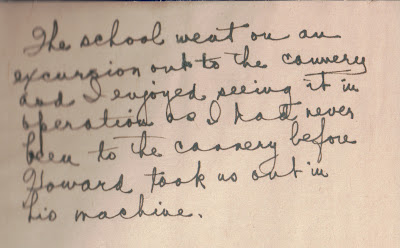 The school went on an
excursion out to the cannery
and I enjoyed seeing it in
operation as I had never
been to the cannery before
Howard took us out in
his machine.